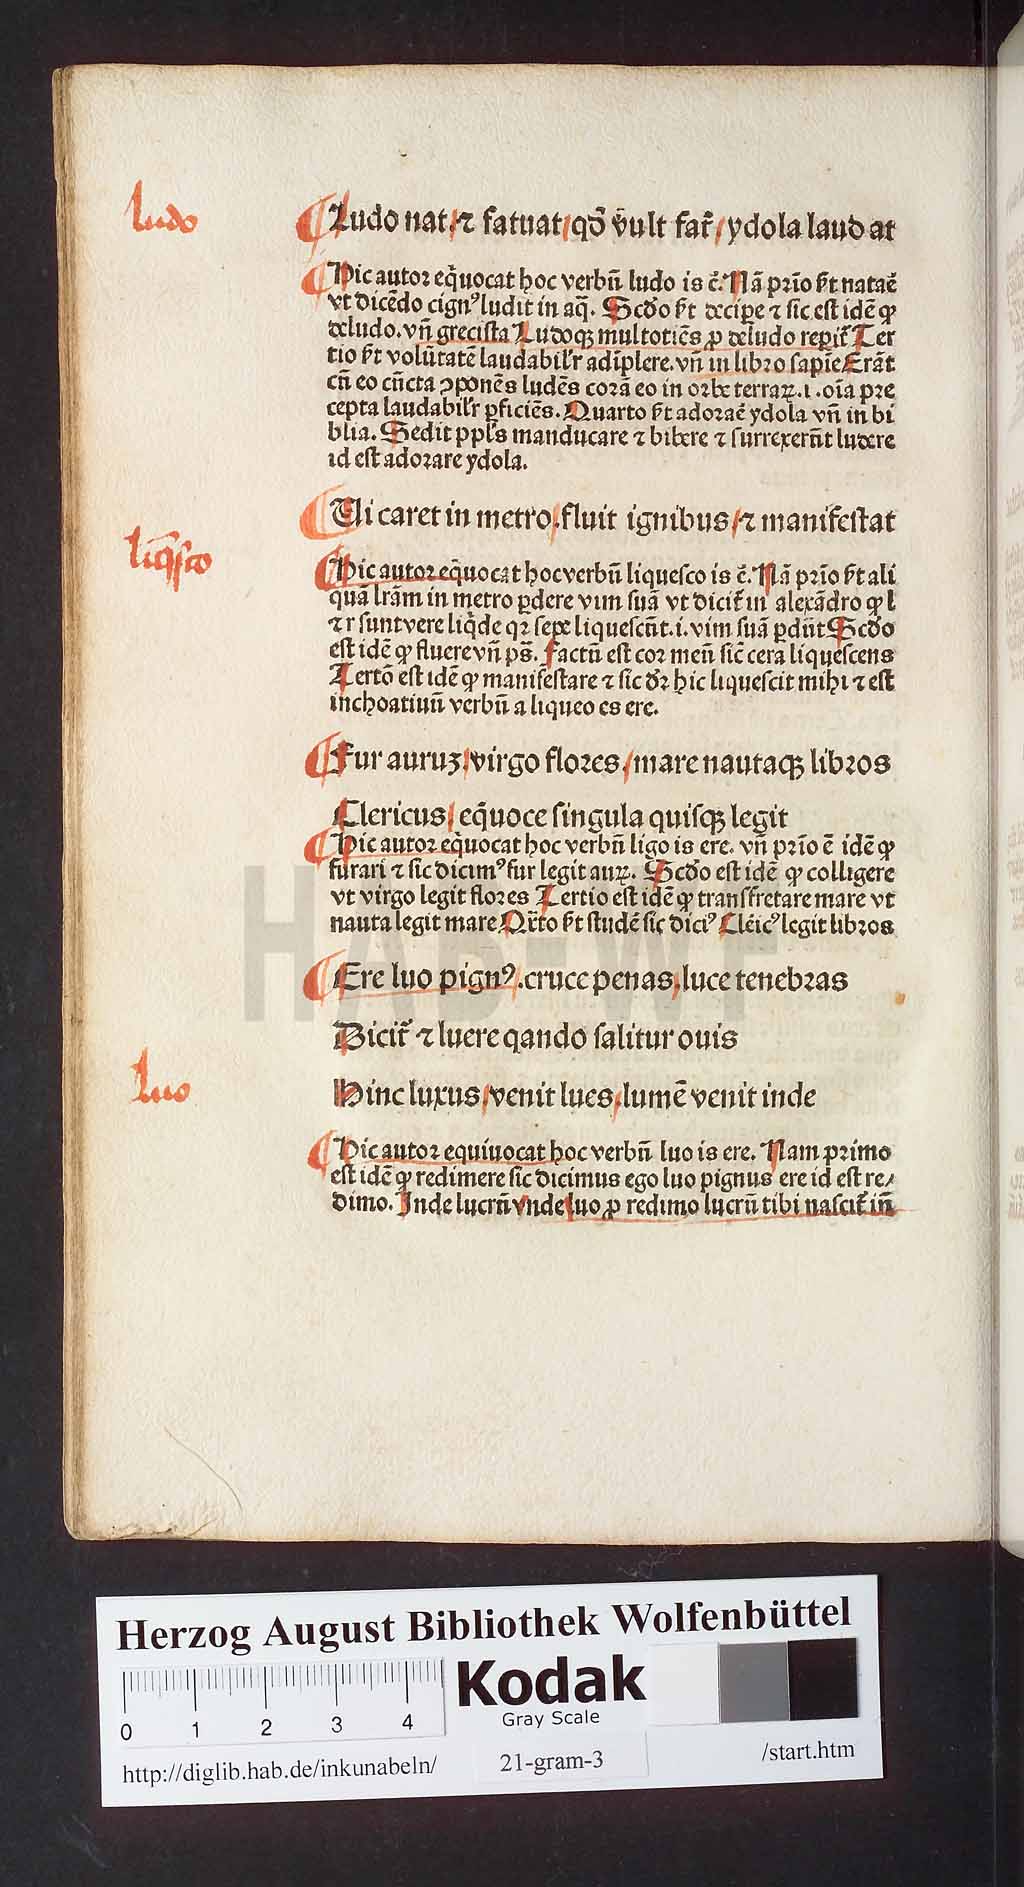 ludo
Ludo nat / ⁊ fatuat / qđ vult fat᷑ / ydola laud at
Hic autor eq̄uocat hoc verbū ludo is ē. Nā prīo ſt nataē
vt dicēdo cignꝰ ludit in aq̄. Scďo ſt decipe ⁊ ſic eſt idē qꝙ
deludo. vn̄ greciſta Ludoqꝫ multotiēs ꝓ deludo repit᷑ Ter
tio ſt volūtatē laudabilr adīplere. vn̄ in libro ſapīe Erāt
cū eo cūcta ꝯponēs ludēs corā eo in orbe terraꝝ .i. oīa pre
cepta laudabilr ꝑficiēs. Quarto ſt adoraē ydola vn̄ in bi
blia. Sedit ppl's manducare ⁊ bibere ⁊ ſurrexerūt ludere
id eſt adorare ydola.
Ui caret in metro / fluit ignibus / ⁊ manifeſtat
liq̄ſco
Hic autor eq̄uocat hocverbū liqueſco is ē. Nā prīo ſt ali
quā lr̄am in metro ꝑdere vim ſuā vt dicit᷑ in alexādro ꝙ l
⁊ r ſuntvere liq̄de qꝛ ſepe liqueſcūt .i. vim ſuā ꝑdūt Scďo
eſt idē ꝙ fluere vn̄ pſ̄. factū eſt cor meū ſic̄ cera liqueſcens
Tertō eſt idē ꝙ manifeſtare ⁊ ſic dr̄ hic liqueſcit mihi ⁊ eſt
inchoatiuū verbū a liqueo es ere.
Fur auruꝫ / virgo flores / mare nautaqꝫ libros
Clericus / eq̄uoce ſingula quiſqꝫ legit
Hic autor eq̄uocat hoc verbū ligo is ere. vn̄ prīo ē idē ꝙ
furari ⁊ ſic dicimꝰ fur legit auꝝ. Scďo eſt idē ꝙ colligere
vt virgo legit flores Tertio eſt idē ꝙ transfretare mare vt
nauta legit mare Qr̄to ſt ſtudē ſic diciꝰ Cleīcꝰ legit libros
Ere luo pignꝰ. cruce penas / luce tenebras
Dicit᷑ ⁊ luere qando ſalitur ouis
luo
Hinc luxus / venit lues / lumē venit inde
Hic autor equiuocat hoc verbū luo is ere. Nam primo
eſt idē ꝙ redimere ſic dicimus ego luo pignus ere id eſt re/
dimo. Inde lucrū vnde luo ꝓ redimo lucrū tibi naſcit᷑ in̄
HAB-WF
Herzog August Bibliothek Wolfenbüttel
Kodak
Gray Scale
0 1 2 3 4
http://diglib.hab.de/inkunabeln/
21-gram-3
/start.htm